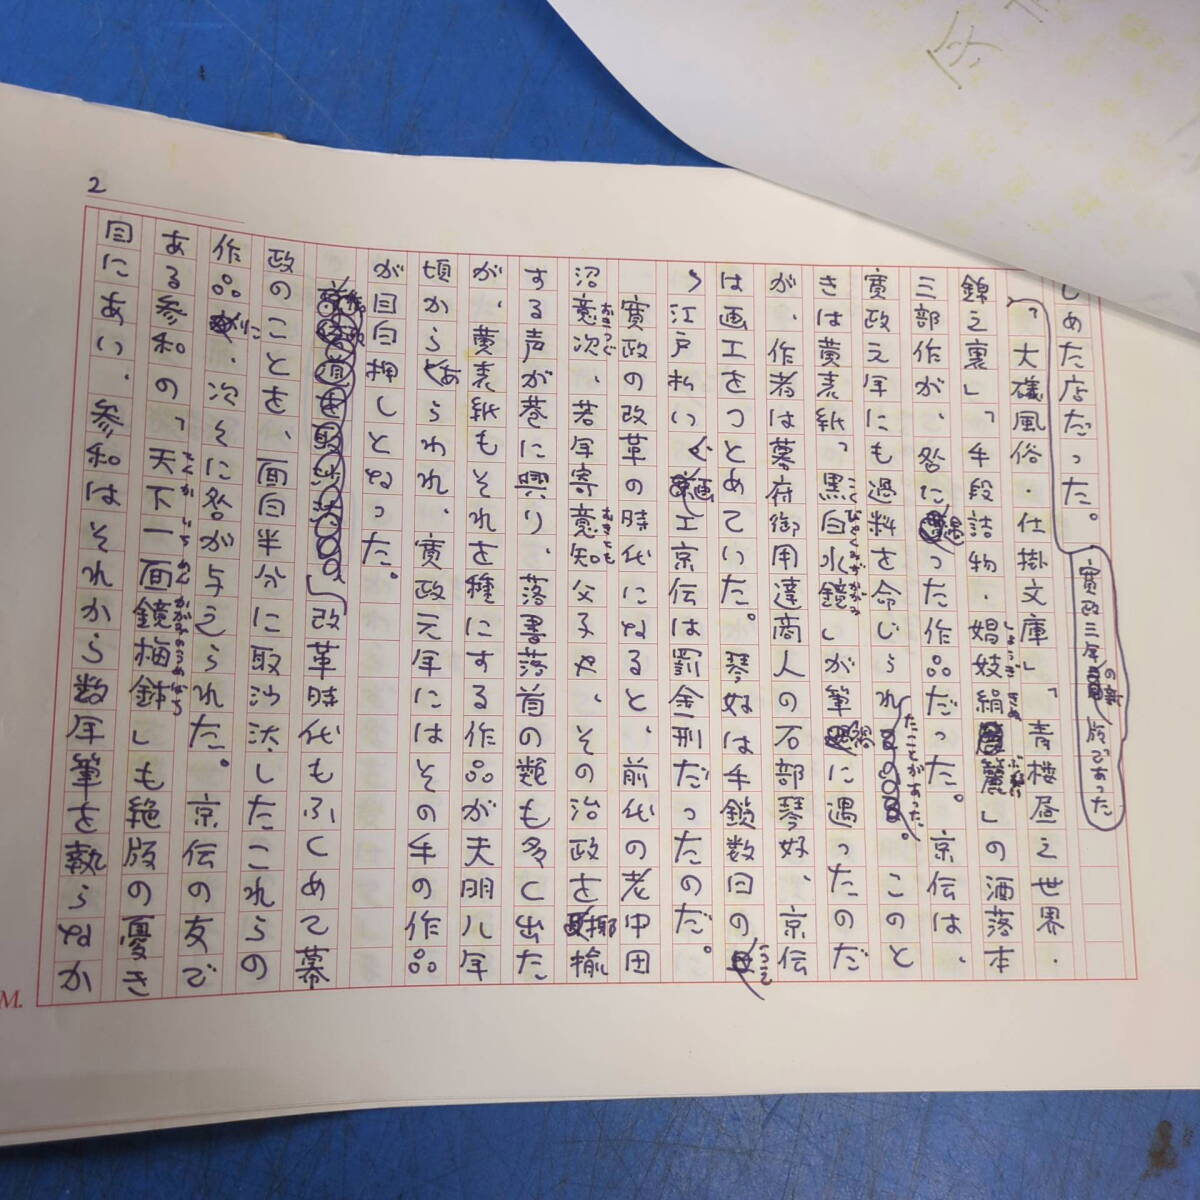 2
しめた店だった。
寛政三年の新版であった
「大磯風俗・仕掛文庫」「青楼昼之世界・
錦之裏」「手段詰物・娼妓絹籭」の洒落本
しょうぎ きぬ ぶるい
三部作が、咎に遇った作品だった。京伝は、
寛政元年にも過料を命じられたことがあった。このと
きは黄表紙「黒白水鏡」が筆禍に遇ったのだ
こくびゃくみずかがみ
が、作者は幕府御用達商人の石部琴好、京伝
は画工をつとめていた。琴好は手鎖数日のうえ
江戸払い、画工京伝は罰金刑だったのだ。
寛政の改革の時代になると、前代の老中田
沼意次、若年寄意知父子や、その治政を揶揄
おきつぐ おきとも
する声が巷に興り、落書落首の類も多く出た
が、黄表紙もそれを種にする作品が天明八年
頃からあらわれ、寛政元年にはその手の作品
が目白押しとなった。
改革時代もふくめて幕
政のことを、面白半分に取沙汰したこれらの
作品に、次々に咎が与えられた。京伝の友で
ある参和の「天下一面鏡梅鉢」も絶版の憂き
てんかいちめんかがみのうめばち
目にあい、参和はそれから数年筆を執らなか
M.